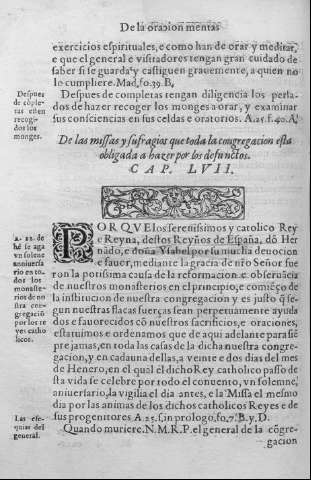 De la oracion mental
exercicios espirituales, e como han de orar y meditar,
e que el general e visitadores tengan gran cuidado de
saber si se guarda y castiguen grauemente, a quien no
lo cumpliere. Mad. fo. 39. B.
Despues de completas tengan diligencia los perla-
dos de hazer recoger los monges a orar, y examinar
sus consciencias en sus celdas e oratorios. A. 25. f. 40. A.
Despues
de cōple-
tas esten
recogi-
dos los
monges.
De las missas y sufragios que toda la congregacion esta
obligada a hazer por los defunctos.
CAP. LVII.
PORQVE los serenissimos y catolico Rey
e Reyna, destos Reyños de España, dō Her
nādo, e doña Ysabel por su mucha deuocion
e fauor, mediante la gracia de nr̄o Señor fue
ron la potissima causa de la reformacion e obseruācia
de nuestros monesterios en el principio, e comiēço de
la institucion de nuestra congregacion y es justo q̄ se-
gun nuestras flacas fuerças sean perpetuamente ayuda
dos e fauorecidos cō nuestros sacrificios, e oraciones,
estatuimos e ordenamos que de aqui adelante para siē
pre jamas, en todo las casas de la dicha nuestra congre-
gacion, y en cada una dellas, a veinte e dos dias del mes
de Henero, en el qual el dicho Rey catholico passo de
sta vida se celebre por todo el conuento, vn solemne,
aniuersario, la vigilia el dia antes, e la Missa el mesmo
dia por las animas de los dichos catholicos Reyes e de
sus progenitores A. 25. f. in prologo, fo. 7. B. y. D.
A. 22. de
hē se aga
vn solene
anniuersa
rio en to-
dos los
monaste-
rios de no
stra con-
gregació
por los re
yes catho
licos.
Quando muriere. N. M. R. P. el general de la cōgre-
gacion
Las ese-
quias del
general.